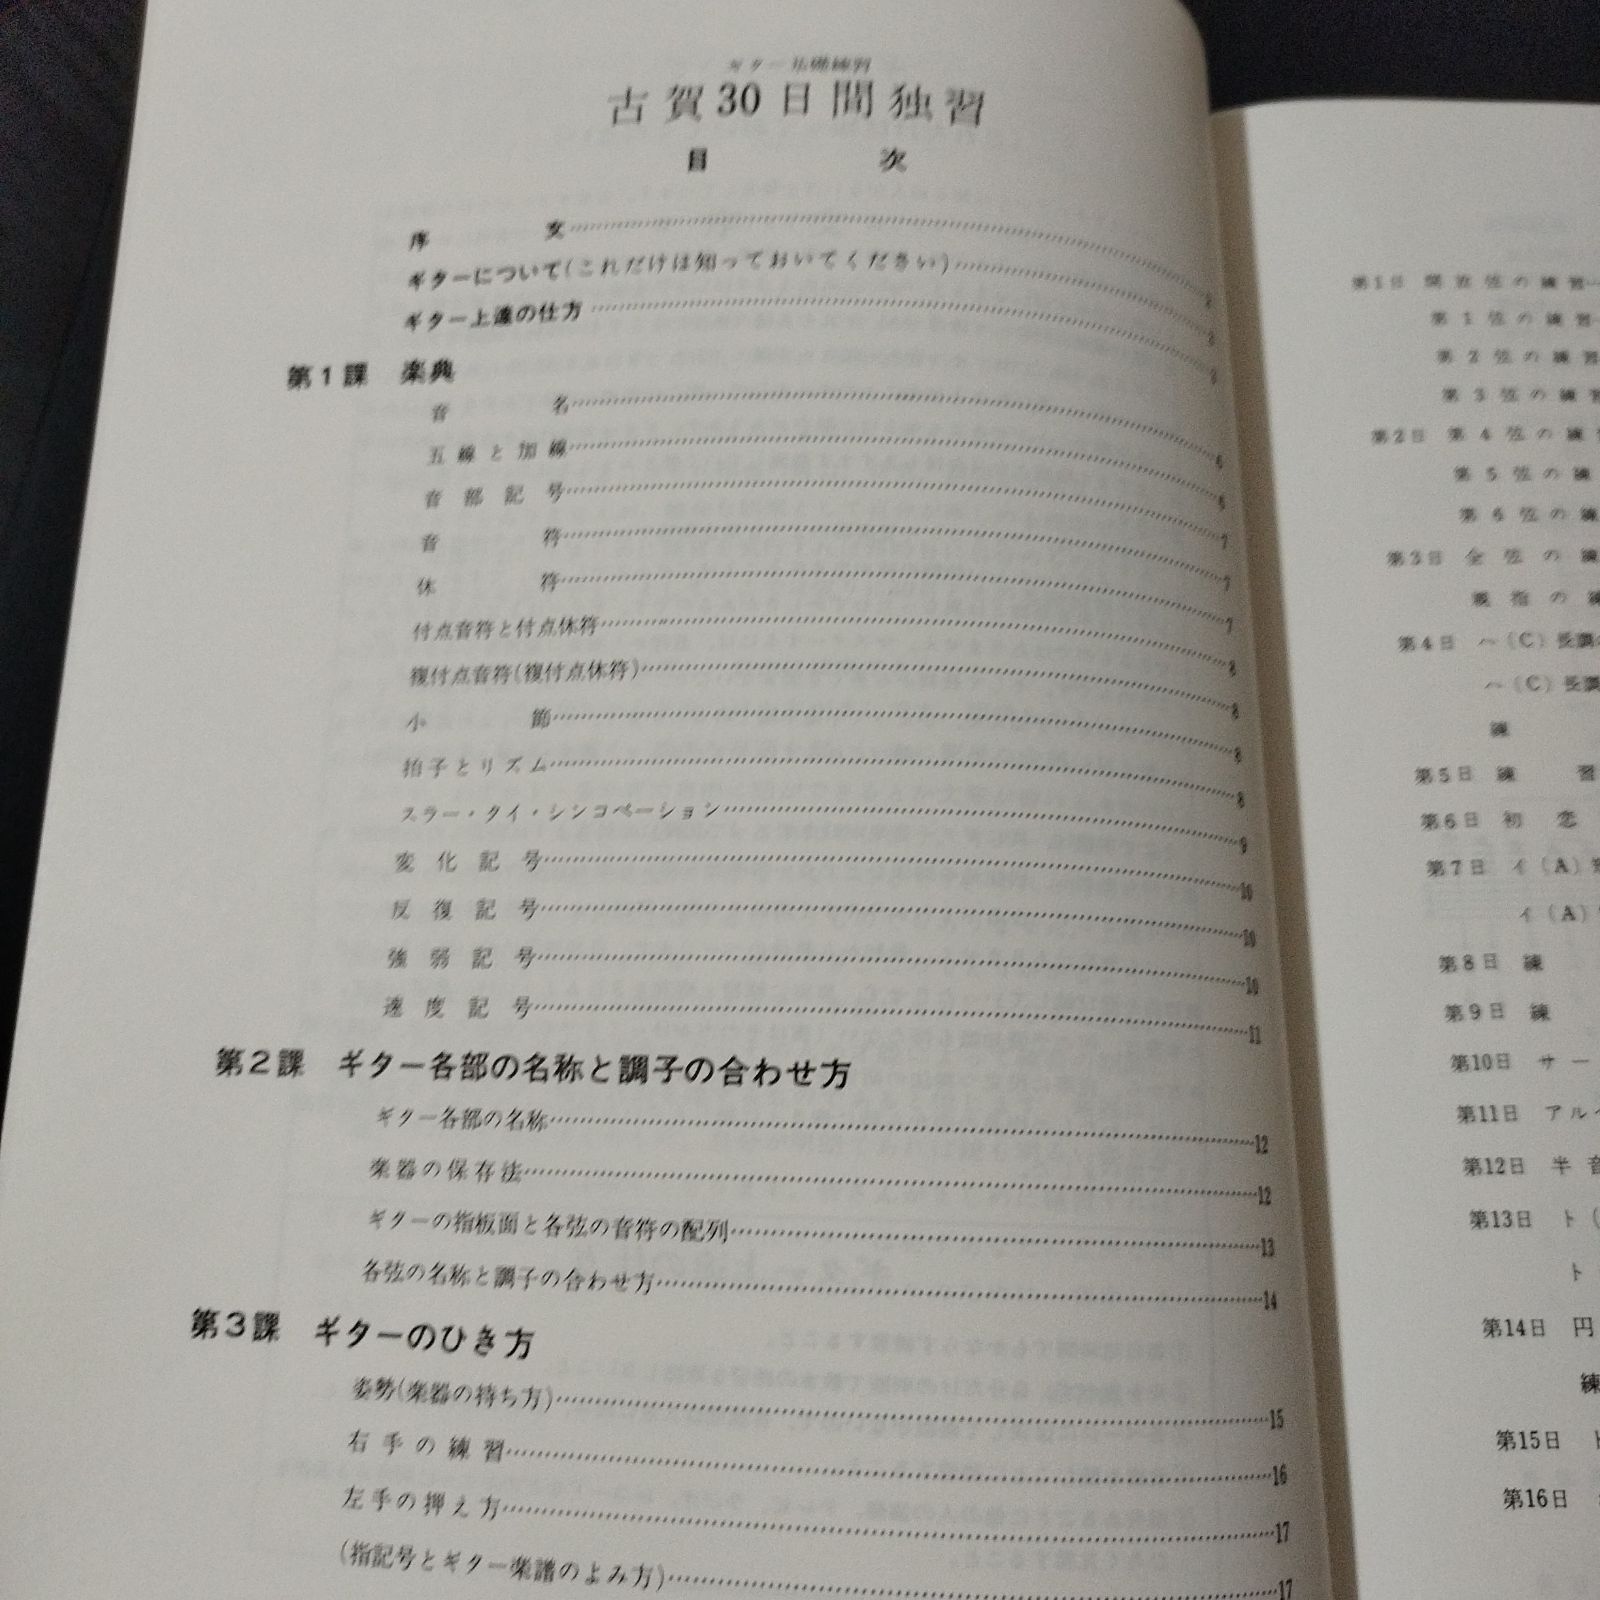 ギター基礎練習
古賀30日間独習
目次
序文
ギターについて(これだけは知っておいてください)……2
ギター上達の仕方……3
第1課 楽典
音名……6
五線と加線……6
音部記号……7
音符……7
休符……7
付点音符と付点休符……8
複付点音符(複付点休符)……8
小節……8
拍子とリズム……8
スラー・タイ・シンコペーション……9
変化記号……10
反復記号……10
強弱記号……10
速度記号……11
第2課 ギター各部の名称と調子の合わせ方
ギター各部の名称……12
楽器の保存法……12
ギターの指板面と各弦の音符の配列……13
各弦の名称と調子の合わせ方……14
第3課 ギターのひき方
姿勢(楽器の持ち方)……15
右手の練習……16
左手の押え方……17
(指記号とギター楽譜のよみ方)……17
第1日 開放弦の練習
第1弦の練習
第2弦の練習
第3弦の練習
第2日 第4弦の練
第5弦の練
第6弦の練
第3日 全弦の練
親指の練
第4日 ハ(C)長調
ハ(C)長調
練
第5日 練習
第6日 初恋
第7日 イ(A)
イ(A)
第8日 練
第9日 練
第10日 サー
第11日 アル
第12日 半音
第13日 ト(
ト
第14日 円
練
第15日 ト
第16日